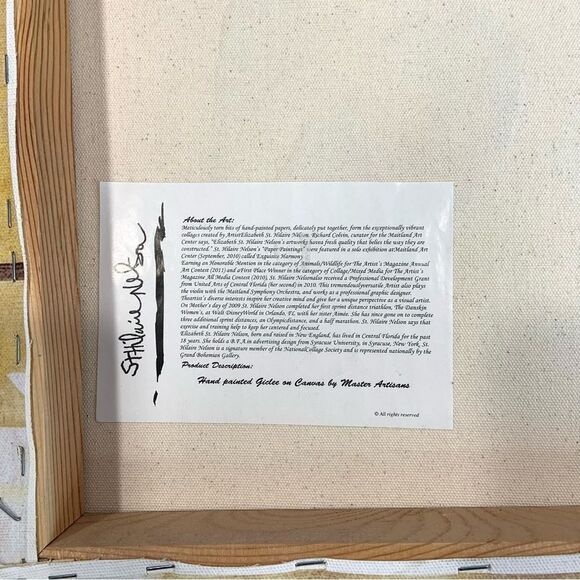 St Hilaire Nelson
About the Art:
Meticulously torn bits of hand-painted papers, delicately put together, form the exceptionally vibrant
collages created by ArtistElizabeth St. Hilaire Nelson. Richard Colvin, curator for the Maitland Art
Center says, "Elizabeth St. Hilaire Nelson's artworks havea fresh quality that belies the way they are
constructed." St. Hilaire Nelson's "Paper Paintings" were featured in a solo exhibition atMaitland Art
Center (September, 2010) called Exquisite Harmony
Earning an Honorable Mention in the category of Animals/Wildlife for The Artist's Magazine Annual
Art Contest (2011) and aFirst Place Winner in the category of Collage/Mixed Media for The Artist's
Magazine All Media Contest (2010), St. Hilaire Nelsonalso received a Professional Development Grant
from United Arts of Central Florida (her second) in 2010. This tremendouslyversatile Artist also plays
the violin with the Maitland Symphony Orchestra, and works as a professional graphic designer.
Theartist's diverse interests inspire her creative mind and give her a unique perspective as a visual artist.
On Mother's day of 2009 St. Hilaire Nelson completed her first sprint distance triathlon, The Danskin
Women's, at Walt DisneyWorld in Orlando, FL, with her sister Aimée. She has since gone on to complete
three additional sprint distances, an Olympicdistance, and a half marathon. St. Hilaire Nelson says that
exercise and training help to keep her centered and focused.
Elizabeth St. Hilaire Nelson, born and raised in New England, has lived in Central Florida for the past
18 years. She holds a B.F.A in advertising design from Syracuse University, in Syracuse, New York. St.
Hilaire Nelson is a signature member of the NationalCollage Society and is represented nationally by the
Grand Bohemian Gallery.
Product Description:
Hand painted Giclee on Canvas by Master Artisans
© All rights reserved